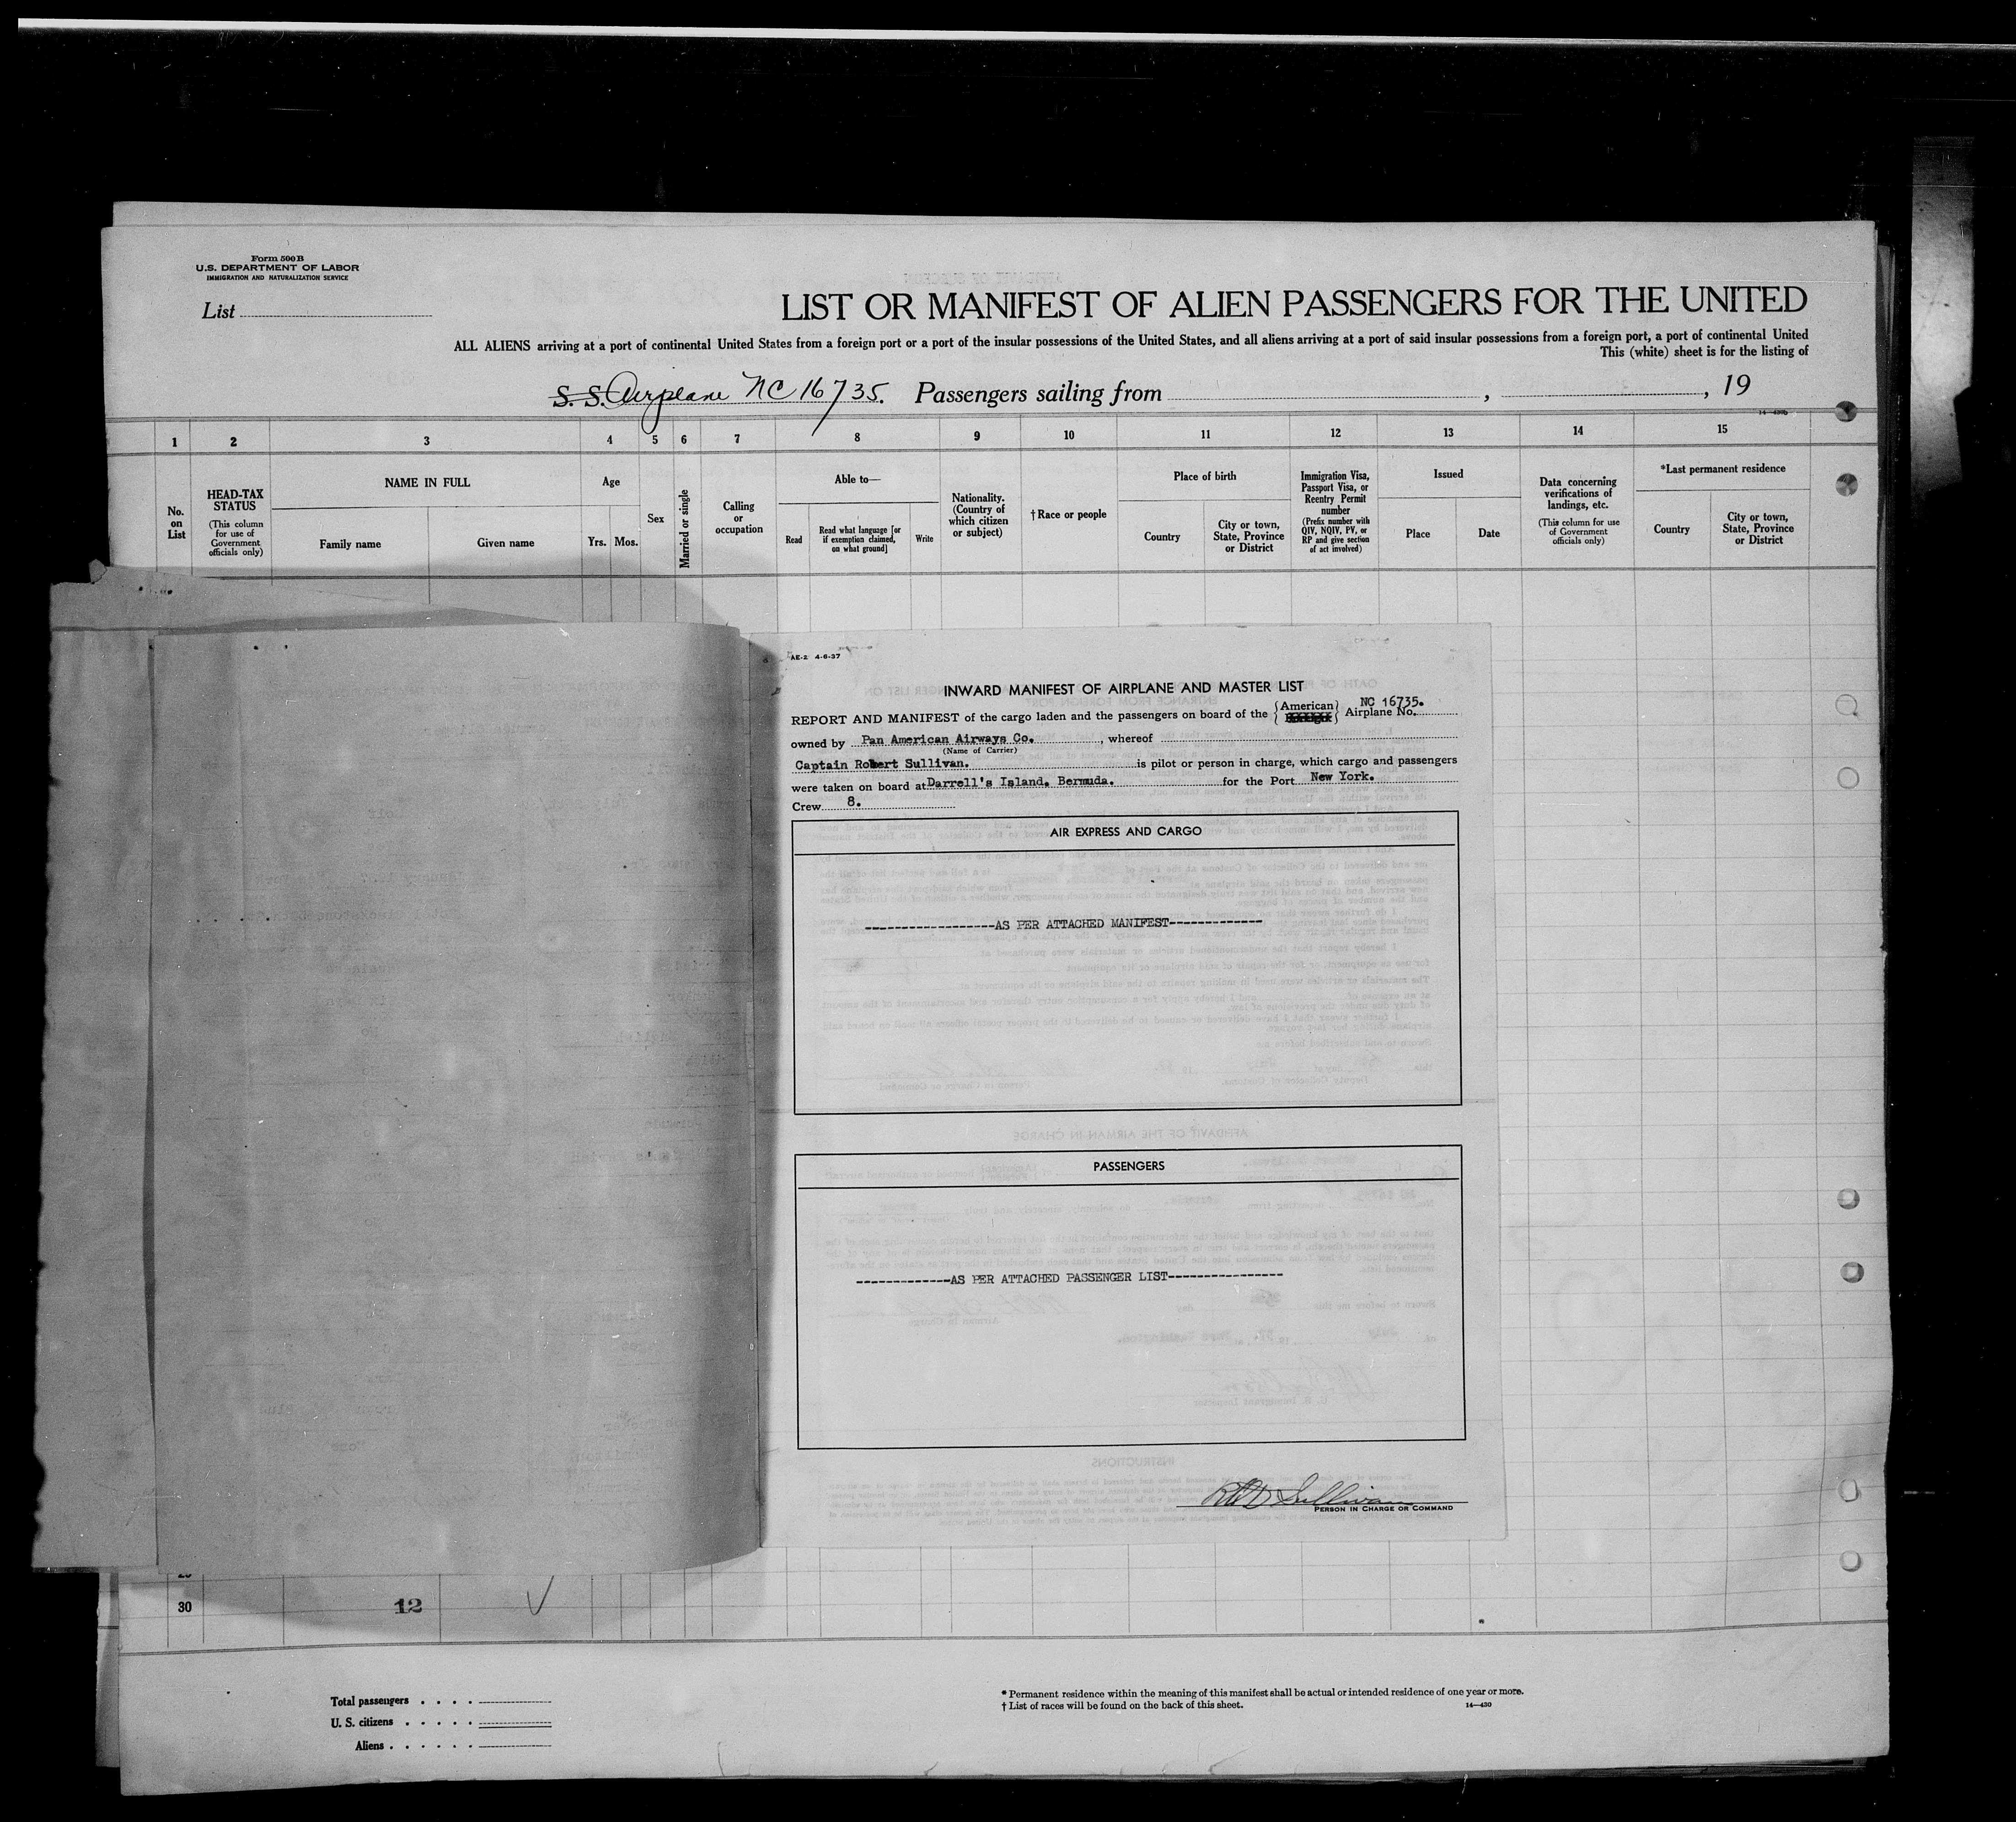 Form 500 B
U.S. DEPARTMENT OF LABOR
IMMIGRATION AND NATURALIZATION SERVICE
List
LIST OR MANIFEST OF ALIEN PASSENGERS FOR THE UNITED
ALL ALIENS arriving at a port of continental United States from a foreign port or a port of the insular possessions of the United States, and all aliens arriving at a port of said insular possessions from a foreign port, a port of continental United
This (white) sheet is for the listing of
S. S. Airplane NC 16735. Passengers sailing from , , 19
14—430b
1 2 3 4 5 6 7 8 9 10 11 12 13 14 15
No. on List
HEAD-TAX STATUS
(This column for use of Government officials only)
NAME IN FULL
Family name
Given name
Age
Yrs. Mos.
Sex
Married or single
Calling or occupation
Able to—
Read
Read what language [or if exemption claimed, on what ground]
Write
Nationality. (Country of which citizen or subject)
† Race or people
Place of birth
Country
City or town, State, Province or District
Immigration Visa, Passport Visa, or Reentry Permit number
(Prefix number with QIV, NQIV, PV, or RP and give section of act involved)
Issued
Place
Date
Data concerning verifications of landings, etc.
(This column for use of Government officials only)
*Last permanent residence
Country
City or town, State, Province or District
AE-2 4-6-37
INWARD MANIFEST OF AIRPLANE AND MASTER LIST
REPORT AND MANIFEST of the cargo laden and the passengers on board of the American Airplane No. NC 16735.
owned by Pan American Airways Co. , whereof
(Name of Carrier)
Captain Robert Sullivan. is pilot or person in charge, which cargo and passengers
were taken on board at Darrell's Island, Bermuda. for the Port New York.
Crew 8.
AIR EXPRESS AND CARGO
------------------AS PER ATTACHED MANIFEST-------------
PASSENGERS
-------------AS PER ATTACHED PASSENGER LIST----------------
R O D Sullivan
PERSON IN CHARGE OR COMMAND
30 12
Total passengers . . . .
U. S. citizens . . . . .
Aliens . . . . . .
* Permanent residence within the meaning of this manifest shall be actual or intended residence of one year or more.
† List of races will be found on the back of this sheet. 14—430